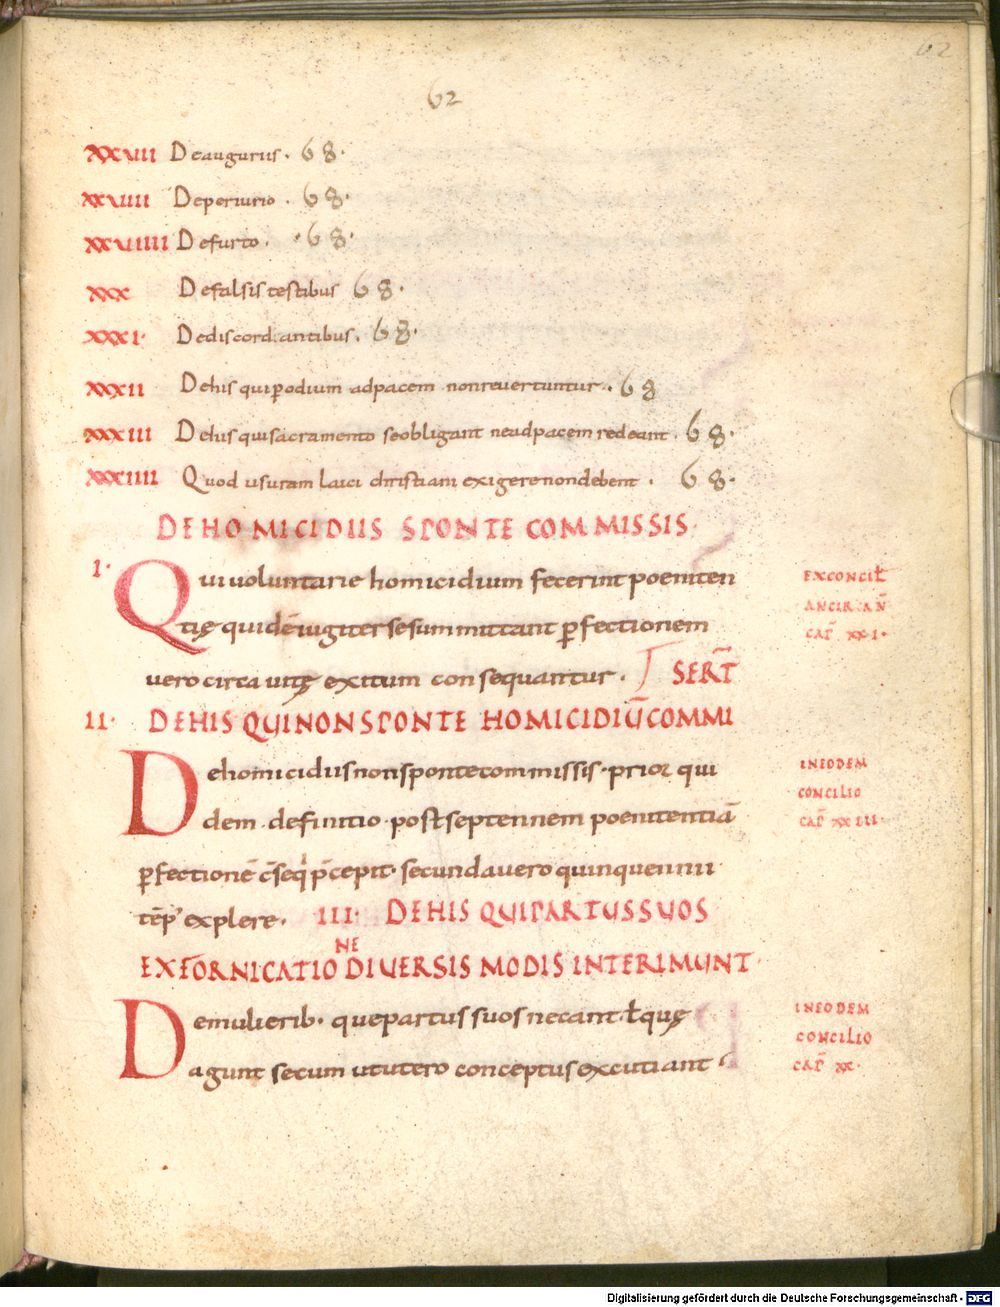 62
62
XXVII De auguriis · 68 ·
XXVIII De periurio · 68 ·
XXVIIII De furto · · 68 ·
XXX De falsis testibus 68 ·
XXXI · De discordantibus · 68 ·
XXXII De his qui ꝑ odium ad pacem non revertuntur · 68
XXXIII De his qui sacramento se obligant ne ad pacem redeant · 68 ·
XXXIIII Quod usuram laici christiani exigere non debent · 68 ·
DE HOMICIDIIS SPONTE COMMISSIS ·
I · Qui voluntarie homicidium fecerint poeniten
tię quidē iugiter se summittant ꝑfectionem
vero circa vitę exitum consequantur · SER̄T
EX CONCIL̄
ANCIRAN̄
CAP̄ XXI ·
II · DE HIS QUI NON SPONTE HOMICIDIŪ COMMI
De homicidiis non sponte commissis · prior qui
dem · definitio · post septennem poenitentiā
ꝑfectionē c̄seq̄ p̄cepit · secunda vero quinquennii
IN EODEM
CONCILIO
CAP̄ XXIII ·
tēp' explere · III · DE HIS QUI PARTUS SUOS
EX FORNICATIONE DIVERSIS MODIS INTERIMUNT ·
De mulierib · que partus suos necant · ł quę
agunt secum ut utero conceptus excutiant
IN EODEM
CONCILIO
CAP̄ XX ·
Digitalisierung gefördert durch die Deutsche Forschungsgemeinschaft - DFG